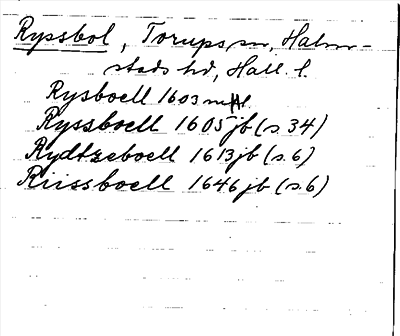 Ryssbol, Torups sn, Halm-
stads hd, Hall. l.
Rysboell 1603
Ryssboell 1605 jb (s. 34)
Rydtzeboell 1613 jb (s. 6)
Riissboell 1646 jb (s. 6)